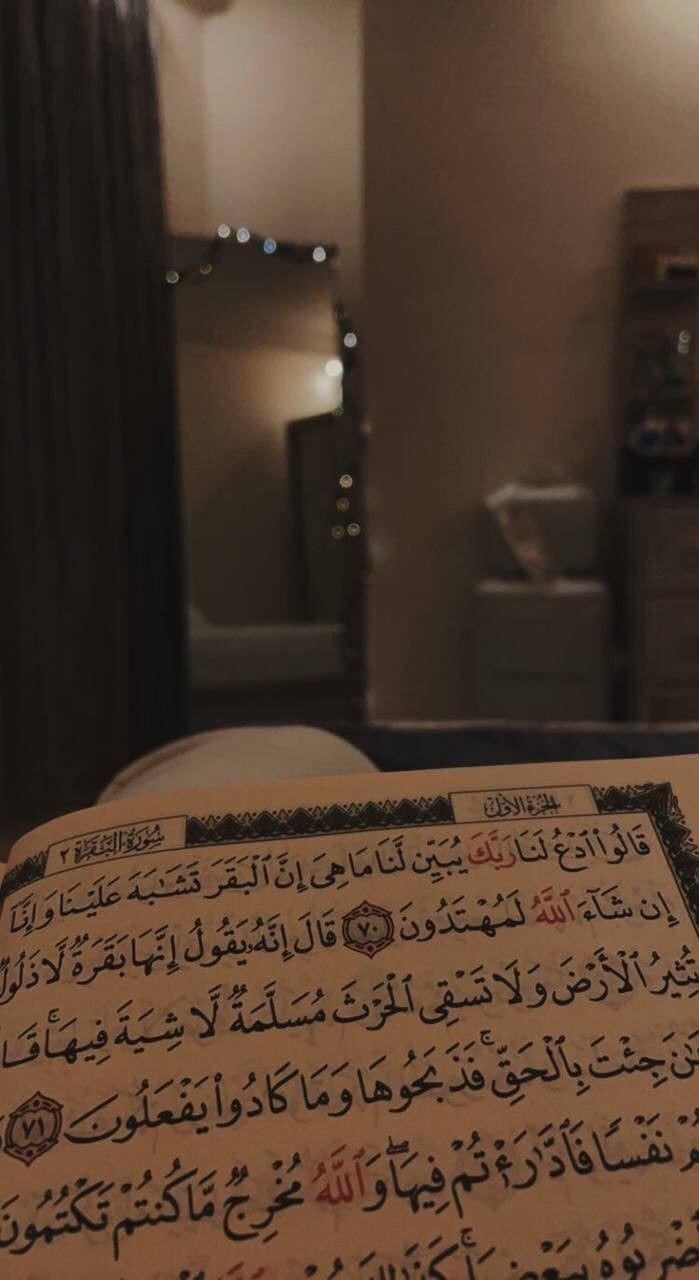 الجزء الأول
سورة البقرة ٢
قَالُوا۟ ٱدْعُ لَنَا رَبَّكَ يُبَيِّن لَّنَا مَا هِىَ إِنَّ ٱلْبَقَرَ تَشَـٰبَهَ عَلَيْنَا وَإِنَّآ
إِن شَآءَ ٱللَّهُ لَمُهْتَدُونَ ٧٠ قَالَ إِنَّهُۥ يَقُولُ إِنَّهَا بَقَرَةٌ لَّا ذَلُولٌ
تُثِيرُ ٱلْأَرْضَ وَلَا تَسْقِى ٱلْحَرْثَ مُسَلَّمَةٌ لَّا شِيَةَ فِيهَا ۚ
جِئْتَ بِٱلْحَقِّ ۚ فَذَبَحُوهَا وَمَا كَادُوا۟ يَفْعَلُونَ ٧١
نَفْسًا فَٱدَّٰرَْٰٔتُمْ فِيهَا ۖ وَٱللَّهُ مُخْرِجٌ مَّا كُنتُمْ تَكْتُمُونَ